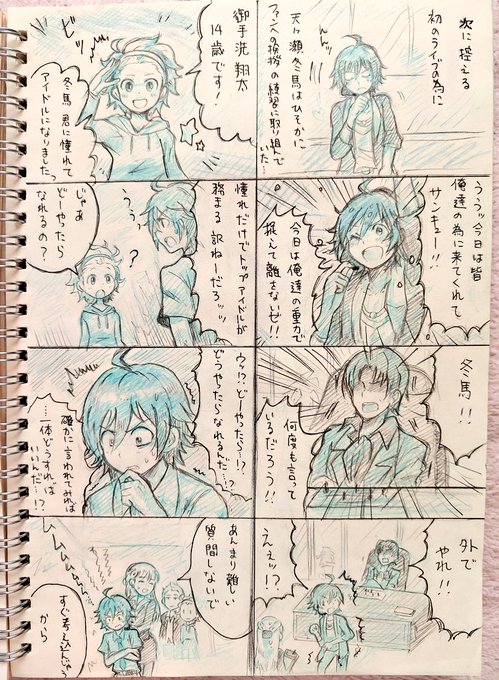 次に控える
初のライブの為に
んんッ
天ヶ瀬冬馬はひそかに
ファンへの挨拶の練習に取り組んで
いた…
うぅッ今日は皆
俺達の為に来てくれて
サンキュー!!
今日は俺達の重力で
捉えて離さないぜ!!
冬馬!!
何度も言って
いるだろう!!
外で
やれ!!
えぇッ!?
御手洗翔太
14歳です!
ビッ
冬馬君に憧れて
アイドルになりました。
憧れだけでトップアイドルが
務まる訳ねーだろッ
うぅっ
じゃあ
どーやったら
なれるの?
?
ウッ!?どーやったら!?
どうやったらなれるんだ…!?
確かに言われてみれば
…一体どうすれば
いいんだ…!?
あんまり難しい
質問しないで
すぐ考え込んじゃう
から
ムムムムム